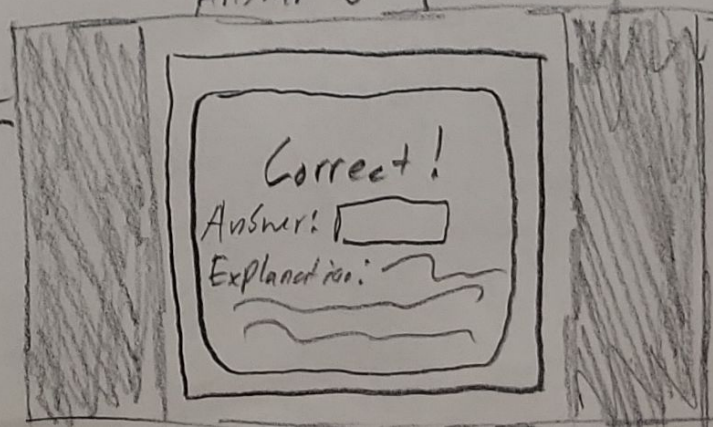 Correct!
Answer:
Explanation: